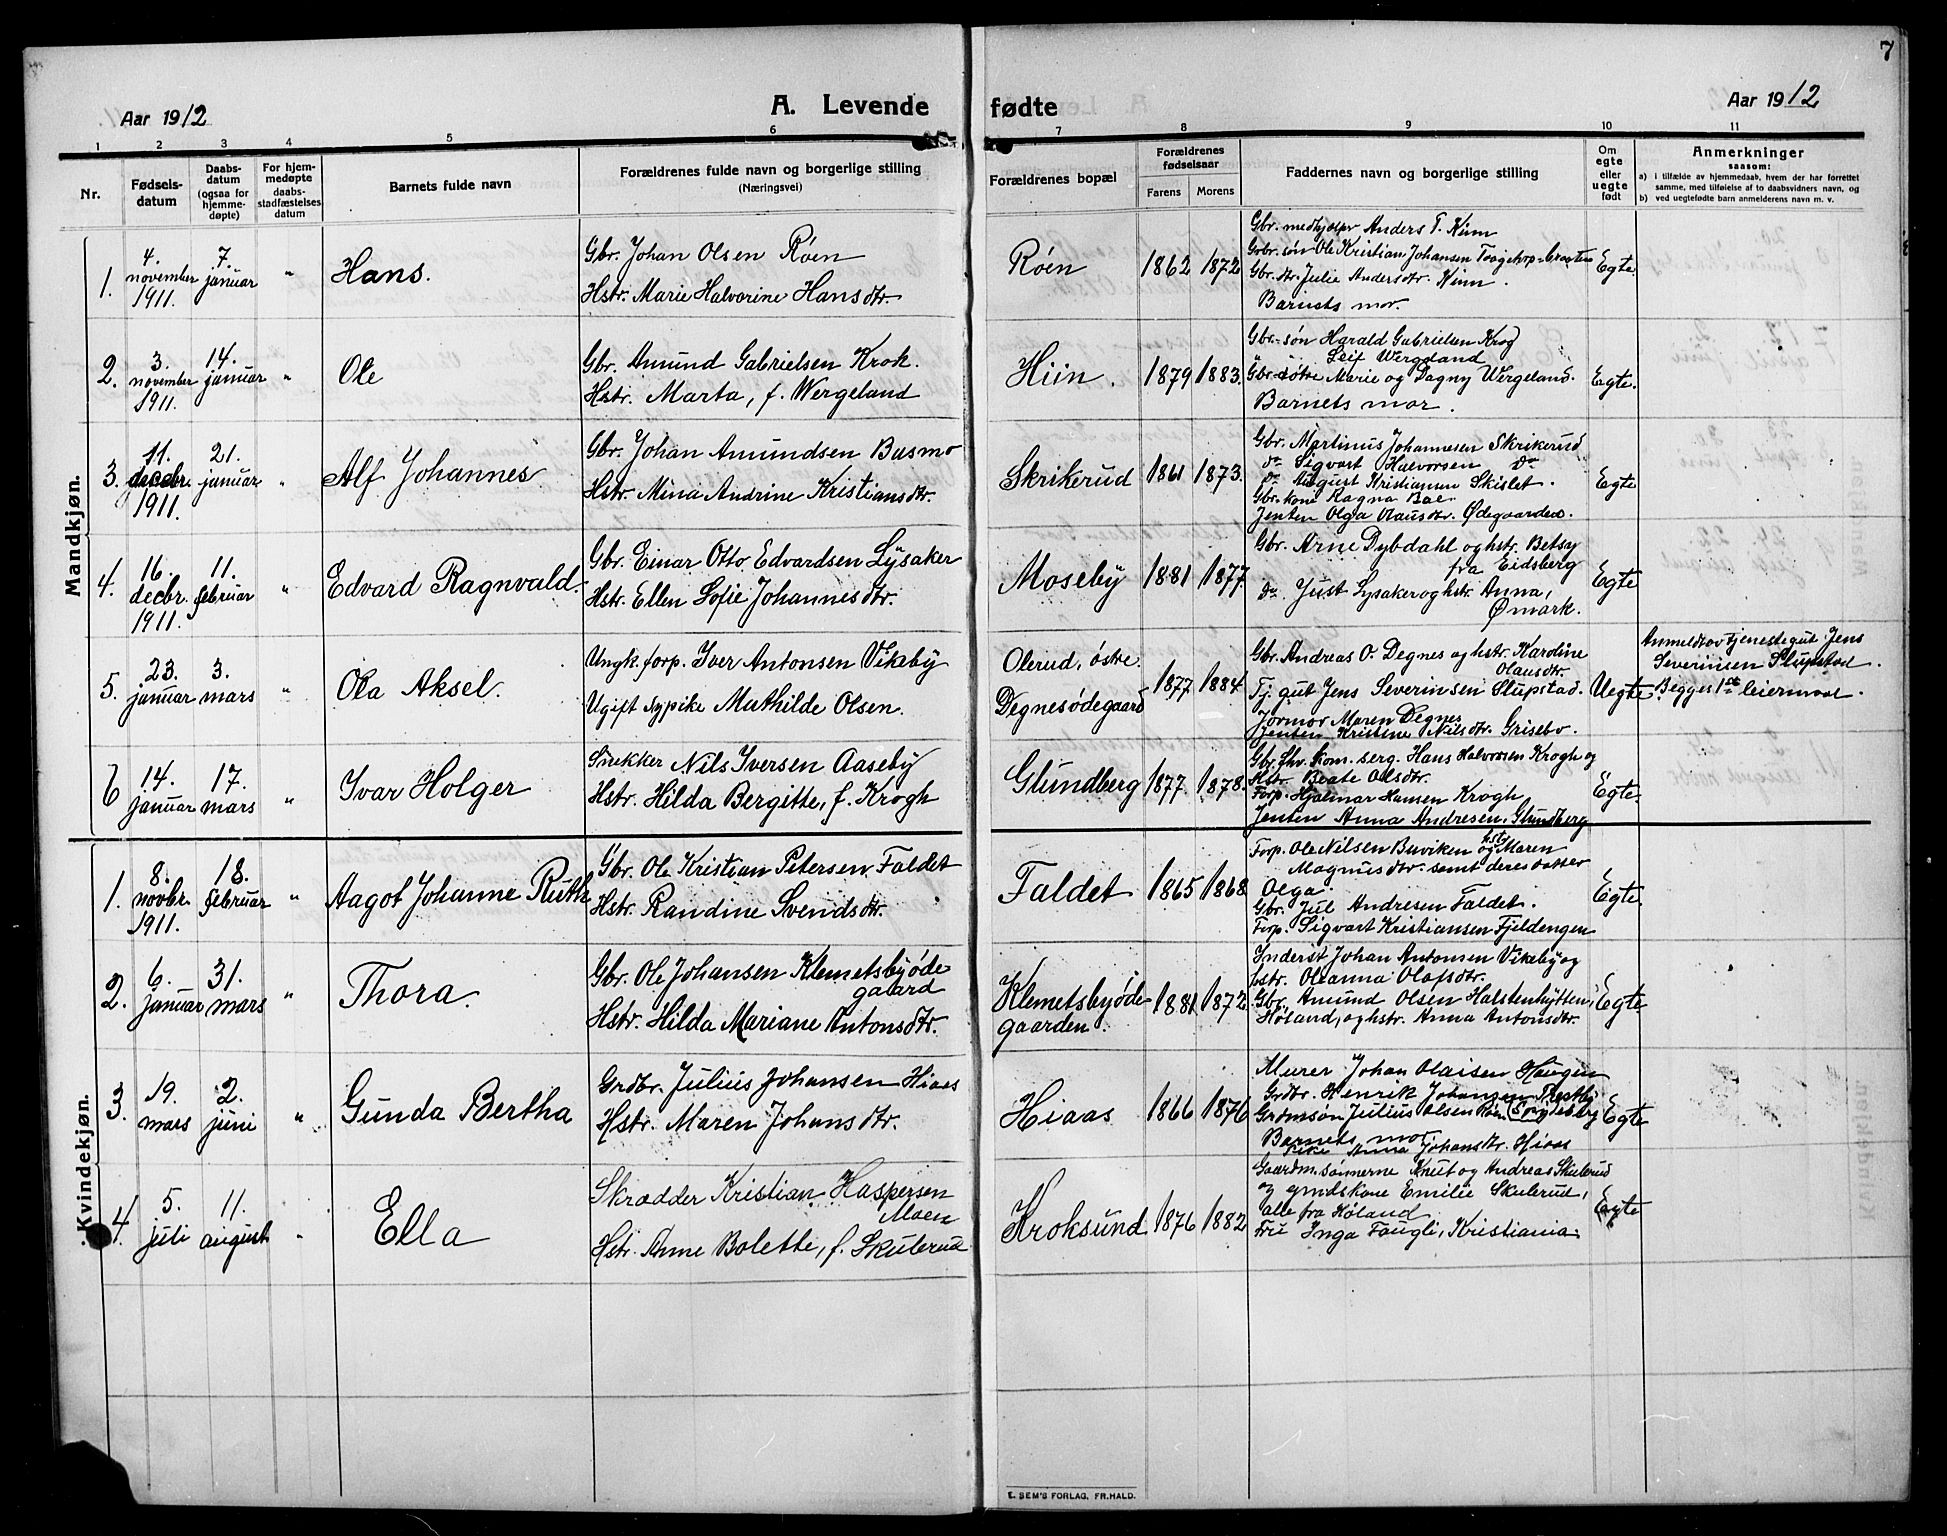 7
Aar 1912
A. Levende
fødte
Aar 1912
1 2 3 4 5 6 7 8 9 10 11
Nr.
Fødsels-
datum
Daabs-
datum
(ogsaa for
hjemme-
døpte)
For hjem-
medøpte
daabs-
stadfæstelses
datum
Barnets fulde navn
Forældrenes fulde navn og borgerlige stilling
(Næringsvei)
Forældrenes bopæl
Forældrenes
fødselsaar
Farens
Morens
Faddernes navn og borgerlige stilling
Om
egte
eller
uegte
født
Anmerkninger
saasom:
a) i tilfælde av hjemmedaab, hvem der har forrettet
samme, med tilføielse af to daabsvidners navn, og
b) ved uegtefødte barn anmelderens navn m. v.
Mandkjøn.
1.
4.
november
1911.
7.
januar
"
Hans.
Gbr. Johan Olsen Röen
Hstr. Marie Halvorine Hansdtr.
Röen
1862
1872
Gbr. medhjelper Anders T. Kinn
Grbr. søn Ole Kristian Johansen
Gbr. dtr. Julie Andersdtr. Kinn.
Barnets mor.
Egte.
2.
3.
november
1911.
14.
januar
"
Ole
Gbr. Amund Gabrielsen Krok.
Hstr. Marta, f. Wergeland
Hiin.
1879
1883.
Gbr. søn Harald Gabrielsen Krog
Leif Wergeland
Gbr. døtre Marie og Dagny Wergeland.
Barnets mor.
Egte.
3.
11.
decebr.
1911.
21.
januar
"
Alf Johannes
Gbr. Johan Amundsen Busmo
Hstr. Mina Andrine Kristiansdtr.
Skrikerud
1861
1873.
Gbr. Martinus Johannesen Skrikerud
do Sigvart Halvorsen do
do August Kristiansen Skislet.
Gbr. kone Ragna Boe
Jenten Olga Olausdtr. Ødegaarden.
Egte
4.
16.
decbr.
1911.
11.
februar
"
Edvard Ragnvald.
Gbr. Einar Otto Edvardsen Lysaker
Hstr. Ellen Sofie Johannesdtr.
Moseby
1881
1877.
Gbr. Arne Dybdahl og hstr. Betsy
fra Eidsberg
do Just Lysaker og hstr. Anna,
Ømark.
Egte
5.
23.
januar
3.
mars
"
Ola Aksel.
Ungk. forp. Iver Antonsen Vikeby
Ugift sypike Mathilde Olsen.
Olerud, østre
Degnesødegaard
1877
1884.
Gbr. Andreas O. Degnes og hstr. Kardine
Olausdtr.
Tj. gut Jens Severinsen Slupstad.
Jormor Maren Degnes
Jenten Kristine Nilsdtr. Grisebo.
Uegte
Anmeldt av tjenestegut Jens
Severinsen Slupstad.
Begges 1ste leiermaal.
6
14.
januar
17.
mars
"
Ivar Holger
Snekker Nils Iversen Aaseby
Hstr. Hilda Bergitte, f. Krogh
Glundberg
1877
1878.
Gbr. Shv. kom. serg. Hans Halvorsen Krogh og
Hstr. Beate Olsdtr.
Forp. Hjalmar Hansen Krogh
Jenten Anna Andresen, Glundberg
Egte.
Kvindekjøn.
1.
8.
novbr.
1911.
18.
februar
"
Aagot Johanne Ruth
Gbr. Ole Kristian Petersen Faldet
Hstr. Randine Svendsdtr.
Faldet
1865
1868
Forp. Ole Nilsen Buviken og hstr. Maren
Magnusdtr. samt deres datter
Olga.
Gbr. Jul Andresen Faldet.
Forp. Sigvart Kristiansen Fjeldengen
Egte.
2.
6.
januar
31.
mars
"
Thora.
Gbr. Ole Johansen Klemetsbyøde
gaard
Hstr. Hilda Mariane Antonsdtr.
Klemetsbyøde
gaarden.
1881
1872.
Inderst Johan Antonsen Vikeby og
hstr. Oleanna Olafsdtr.
Gbr. Amund Olsen Halstenhytten,
Høland, og hstr. Anna Antonsdtr.
Egte
3.
19.
mars
2.
juni
"
Gunda Bertha
Grdbr. Julius Johansen Hiaas
Hstr. Maren Johansdtr.
Hiaas
1866
1876
Murer Johan Olaisen Haugen
Grdbr. Henrik Johansen
Grdmsøn Julius Olsen
Barnets mor
Pike Anna Johansdtr. Hiaas
Egte
4.
5.
juli
11.
august
"
Ella
Skrædder Kristian Haspersen
Moen
Hstr. Anne Bolette, f. Skulerud
Kroksund
1876
1882
Gaardm. sønnerne Knut og Andreas Skulerud
og gmdskone Emilie Skulerud,
alle fra Høland
Fru Inga Faugli, Kristiania.
Egte
E. SEM'S FORLAG, FR.HALD.